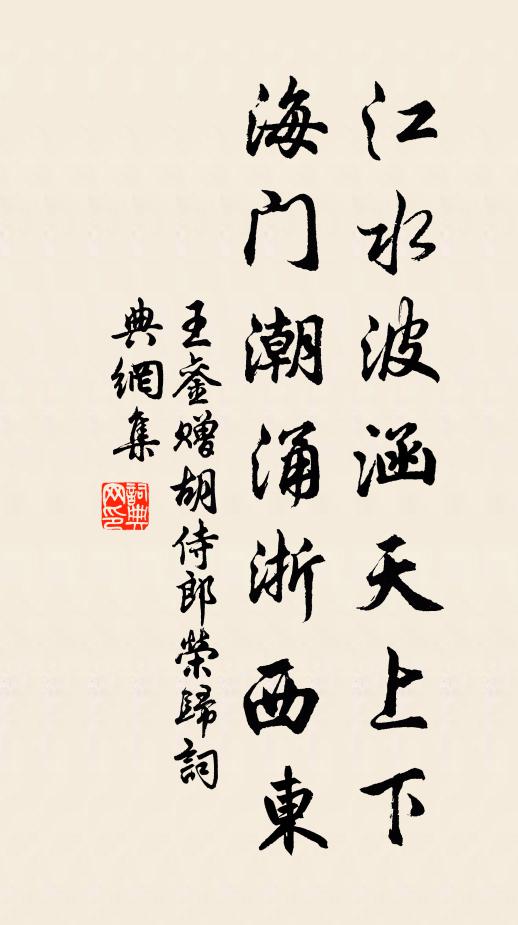 江水波涵天上下
海门潮涌浙西東
王鏊赠胡侍郎榮歸詞
典網集
詞典网印